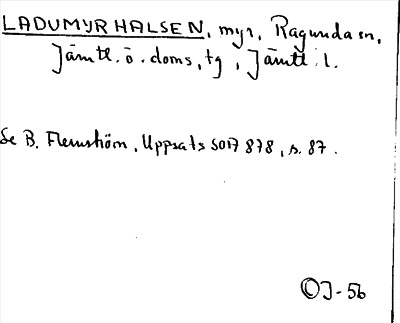 LADUMYRHALSEN, myr, Ragunda sn,
Jämtl. ö. doms. tg, Jämtl. l.
Se B. Flemström, Uppsats SOFI 878, s. 87.
©J-56